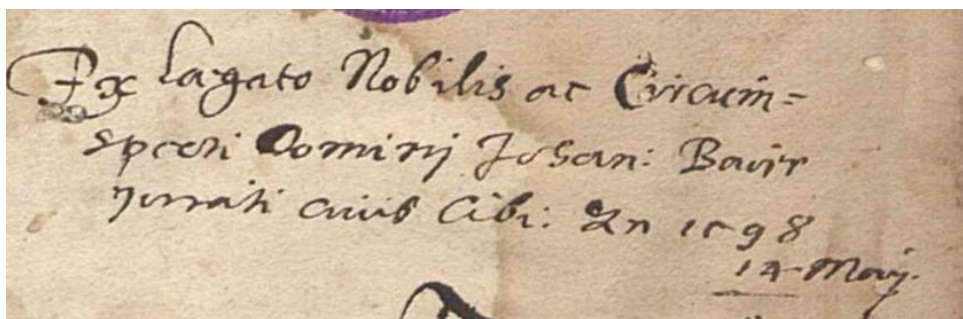 Ex Lagato Nobilis ac Circum=
specti Dominij Johan: Bavir
jurrati civis Cibi: An 1598
14 Maij.